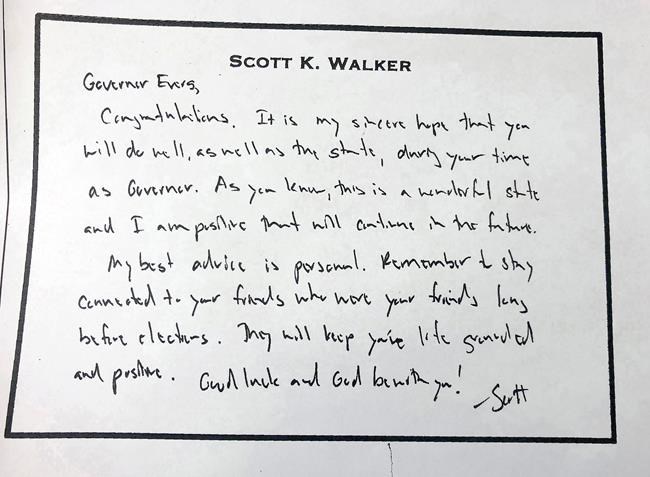 SCOTT K. WALKER
Governor Evers,
Congratulations. It is my sincere hope that you
will do well, as well as the state, during your time
as Governor. As you know, this is a wonderful state
and I am positive that will continue in the future.
My best advice is personal. Remember to stay
connected to your friends who were your friends long
before elections. They will keep you're life grounded
and positive. Good luck and God be with you!
-Scott